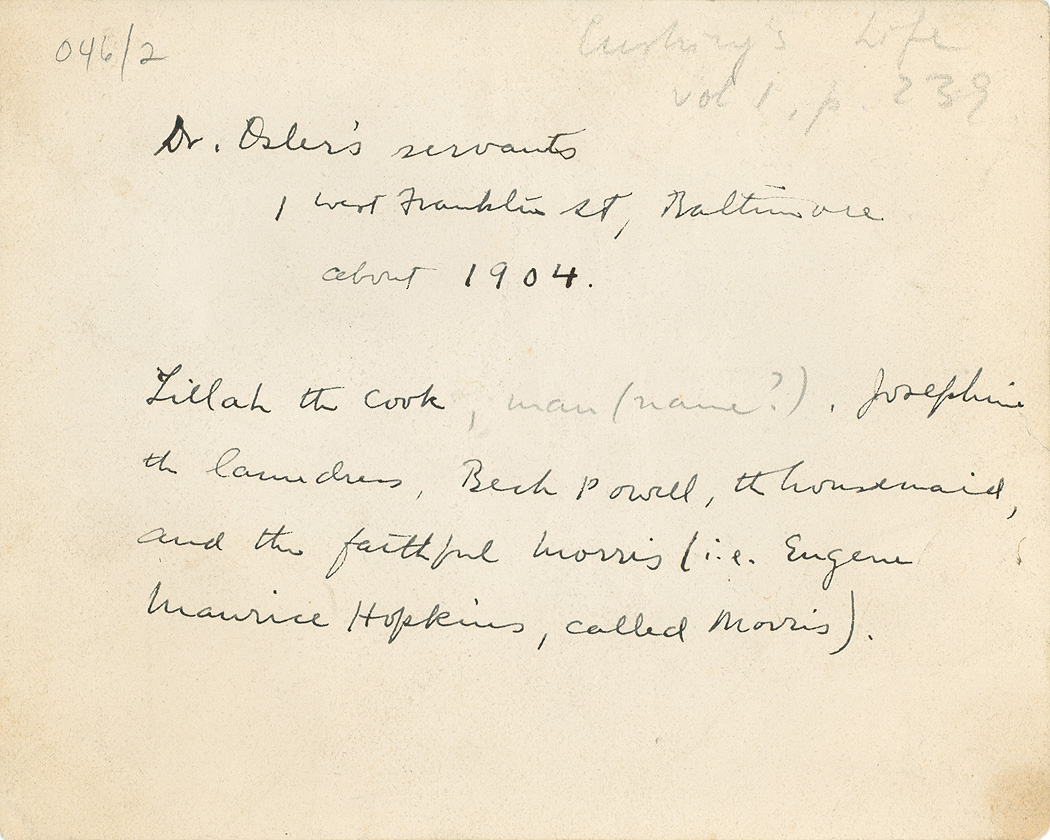 046/2
Cushing's Life
vol 1, p. 239
Dr. Osler's servants
1 west Franklin st, Baltimore
about 1904.
Lillah the cook, man (name?). Josephine
the laundress, Beck Powell, the housemaid,
and the faithful Morris (i.e. Eugene
Maurice Hopkins, called Morris).